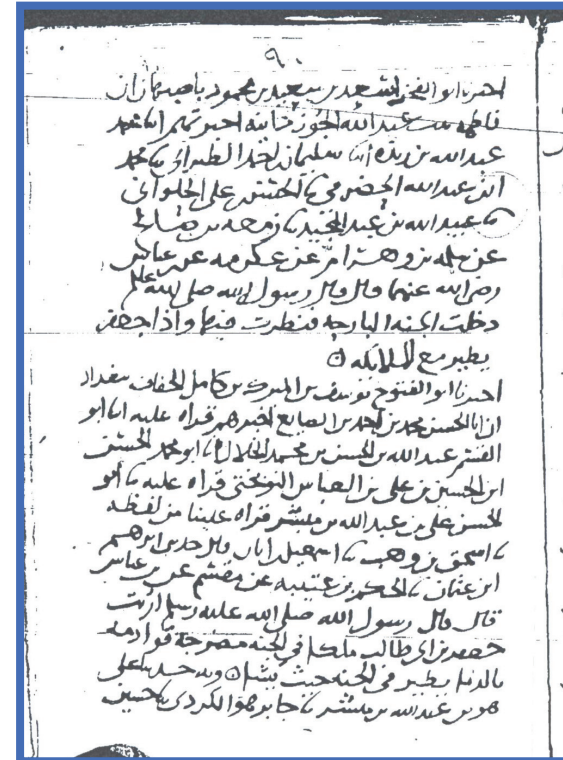 ٩٠
اخبرنا ابو الفخر اسعد بن سعيد بن محمود باصبهان ان
فاطمة بنت عبد الله الجوزدانية اخبرتهم ابنا محمد
عبد الله بن ريذه ابنا سليمان احمد الطبراني ثنا محمد
ابن عبد الله الحضرمي ثنا الحسن على الحلواني
ثنا عبيد الله بن عبد المجيد ثنا زمعه بن صالح
عن سلمه بن وهرام عن عكرمه عن عباس
رضى الله عنهما قال قال رسول الله صلى الله عليه
دخلت الجنه البارحه فنظرت فيها واذا جعفر
يطير مع الملائكه
اخبرنا ابو الفتوح يوسف بن المبرك بن كامل الخفاف ببغداد
ان ابا الحسن محمد بن احمد بن الصايغ اخبرهم قراه عليه ابنا ابو
القسم عبد الله بن الحسن بن محمد الخلال ابنا ابو محمد الحسن
ابن الحسين بن علي بن العباس النوبختي قراه عليه ثنا ابو
الحسن علي بن عبد الله بن مبشر قراه علينا من لفظه
ثنا اسحق بن وهب ثنا اسمعيل ابان قال حدثنى ابرهيم
ابن عثمان ثنا الحكم بن عتيبه عن مقسم عن بن عباس
قال قال رسول الله صلى الله عليه وسلم اريت
جعفر بن ابي طالب ملكا في الجنه مضرجة قوادمه
بالدما يطير في الجنه حيث يشا وبه حدثنا علي
هو بن عبد الله بن مبشر ثنا جابر هو الكردي ثنا حسين